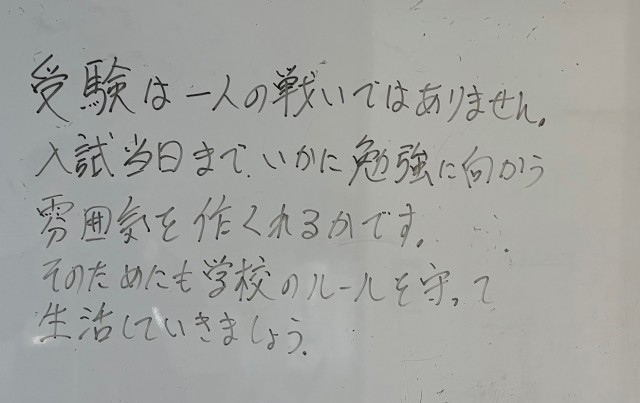 受験は一人の戦いではありません。
入試当日まで、いかに勉強に向かう
雰囲気を作くれるかです。
そのためにも学校のルールを守って
生活していきましょう。